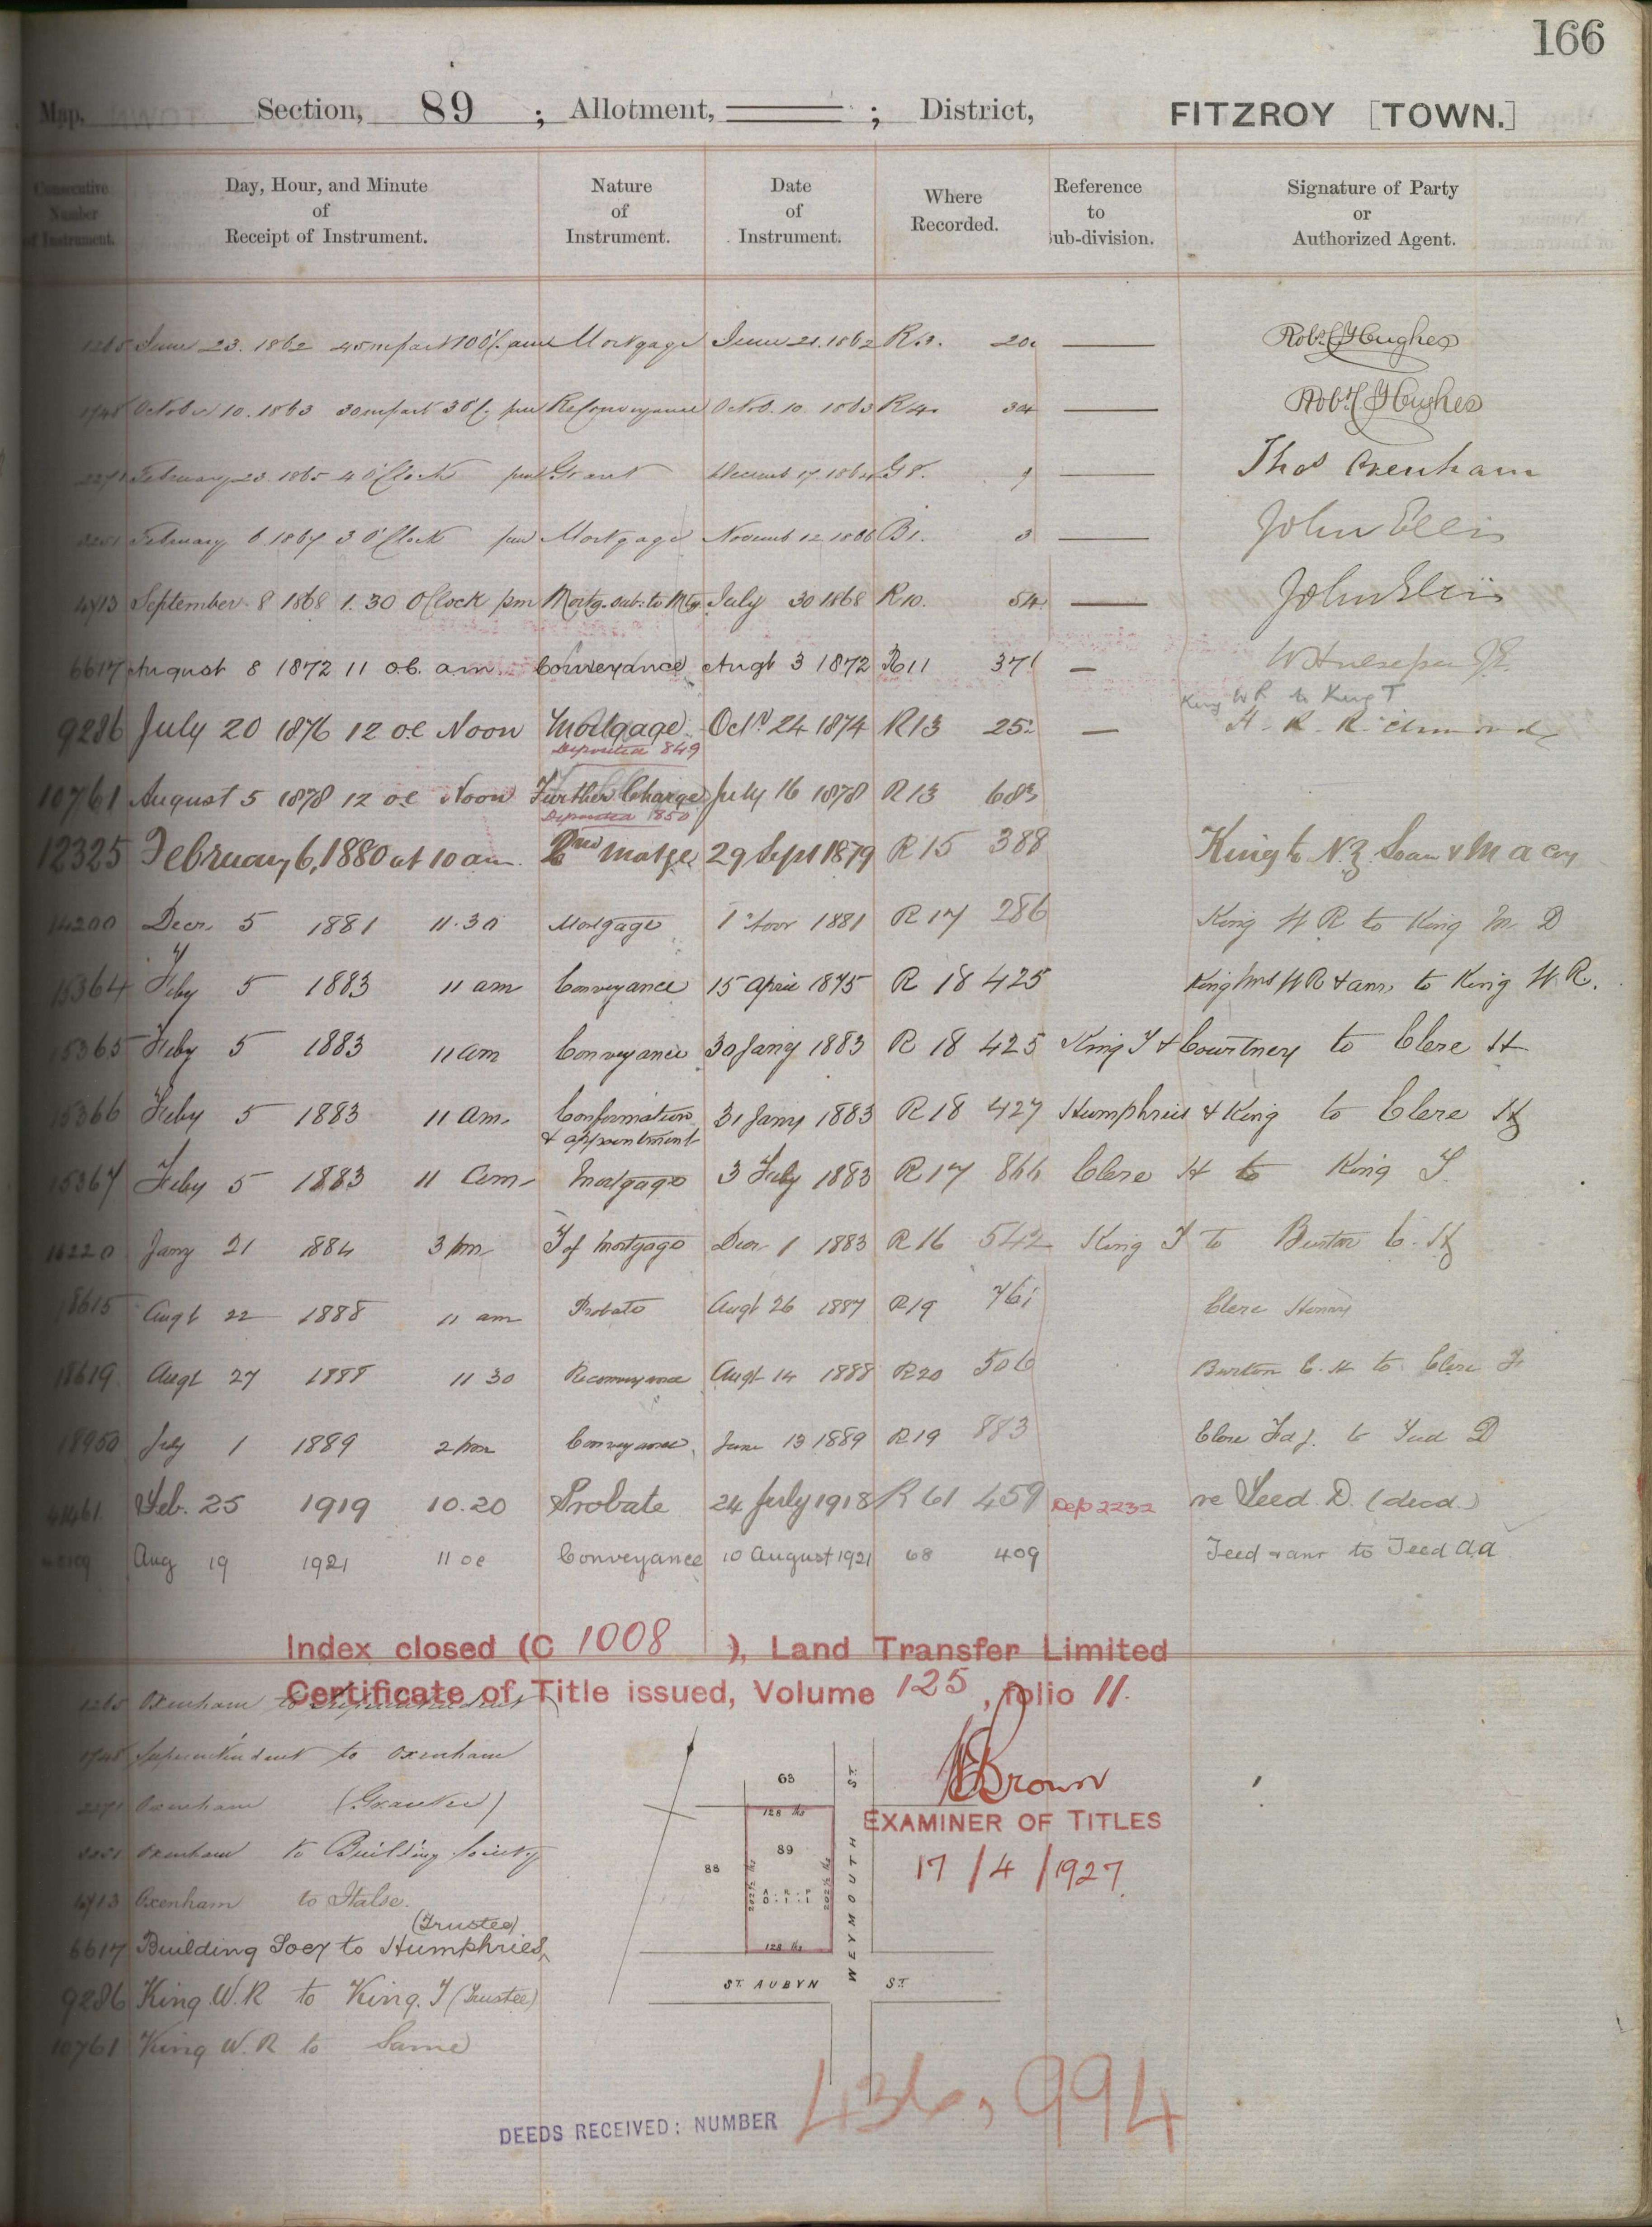 166
Map, Section, 89 ; Allotment, ; District, FITZROY [TOWN.]
Consecutive Number of Instrument.
Day, Hour, and Minute of Receipt of Instrument.
Nature of Instrument.
Date of Instrument.
Where Recorded.
Reference to Sub-division.
Signature of Party or Authorized Agent.
1265 June 23. 1862 45 m past 10 O'C. am Mortgage June 21. 1862 R3. 20 Robt Hughes
1748 October 10. 1863 30 m past 3 O'C. pm Reconveyance Octob. 10. 1863 R4. 34 Robt Hughes
2271 February 23. 1865 4 O'Clock pm Grant Decemb 17 1864 G8. 9 Thos Oxenham
3251 February 6. 1867 3 O'Clock pm Mortgage Novemb 12 1866 B1. 3 John Ellis
4713 September 8 1868 1. 30 O'Clock pm Mortg. sub. to Mtg. July 30 1868 R10. 54 John Ellis
6617 August 8 1872 11 o.C. a.m. Conveyance Augt 3 1872 R11 371
King W R to King T
9286 July 20 1876 12 o.c Noon Mortgage Octr 24 1874 R13 25 H. R. Richmond
Deposited 849
10761 August 5 1878 12 o.c Noon Further Charge July 16 1878 R13 683
Deposited 850
12325 February 6, 1880 at 10 am. 2nd Matge 29 Sept 1879 R 15 388 King to N.Z. Loan & M a Coy
14200 Decr. 5 1881 11.30 Mortgage 1 Novr 1881 R 17 286 King W R to King M D
15364 Feby 5 1883 11 am Conveyance 15 April 1875 R 18 425 King Mrs W R & anr. to King W R.
15365 Feby 5 1883 11 am Conveyance 30 Jany 1883 R 18 425 King T & Courtney to Clere H
15366 Feby 5 1883 11 am. Confirmation & appointment 31 Jany 1883 R 18 427 Humphries & King to Clere H
15367 Feby 5 1883 11 am. Mortgage 3 Feby 1883 R 17 866 Clere H to King T.
16220 Jany 21 1884 3 pm T of Mortgage Decr 1 1883 R 16 542 King T to Burton C. H
18615 Augt 22 1888 11 am Probate Augt 26 1887 R19 761 Clere Henry
18619 Augt 27 1888 11 30 Reconveyance Augt 14 1888 R20 506 Burton C. H to Clere F
18950 July 1 1889 2 pm Conveyance June 13 1889 R 19 883 Clere F a J. to Teed D
41461 Feb. 25 1919 10.20 Probate 24 July 1918 R 61 459 Dep 2232 re Teed. D. (decd.)
Aug 19 1921 11 oc Conveyance 10 August 1921 68 409 Teed & anr to Teed A.A
Index closed (C 1008 ), Land Transfer Limited
Certificate of Title issued, Volume 125, folio 11.
1265 Oxenham to Superintendent
1748 Superintendent to Oxenham
2271 Oxenham (Grantee)
3251 Oxenham to Building Society
4713 Oxenham to Halse.
(Trustee)
6617 Building Socy to Humphries
9286 King W. R to King. T (Trustee)
10761 King W. R to Same
63
128 lks
89
88
202½ lks
A. R. P.
0. 1. 1.
202½ lks
128 lks
WEYMOUTH ST.
ST. AUBYN ST.
Brown
EXAMINER OF TITLES
17 / 4 / 1927.
DEEDS RECEIVED: NUMBER 436,994